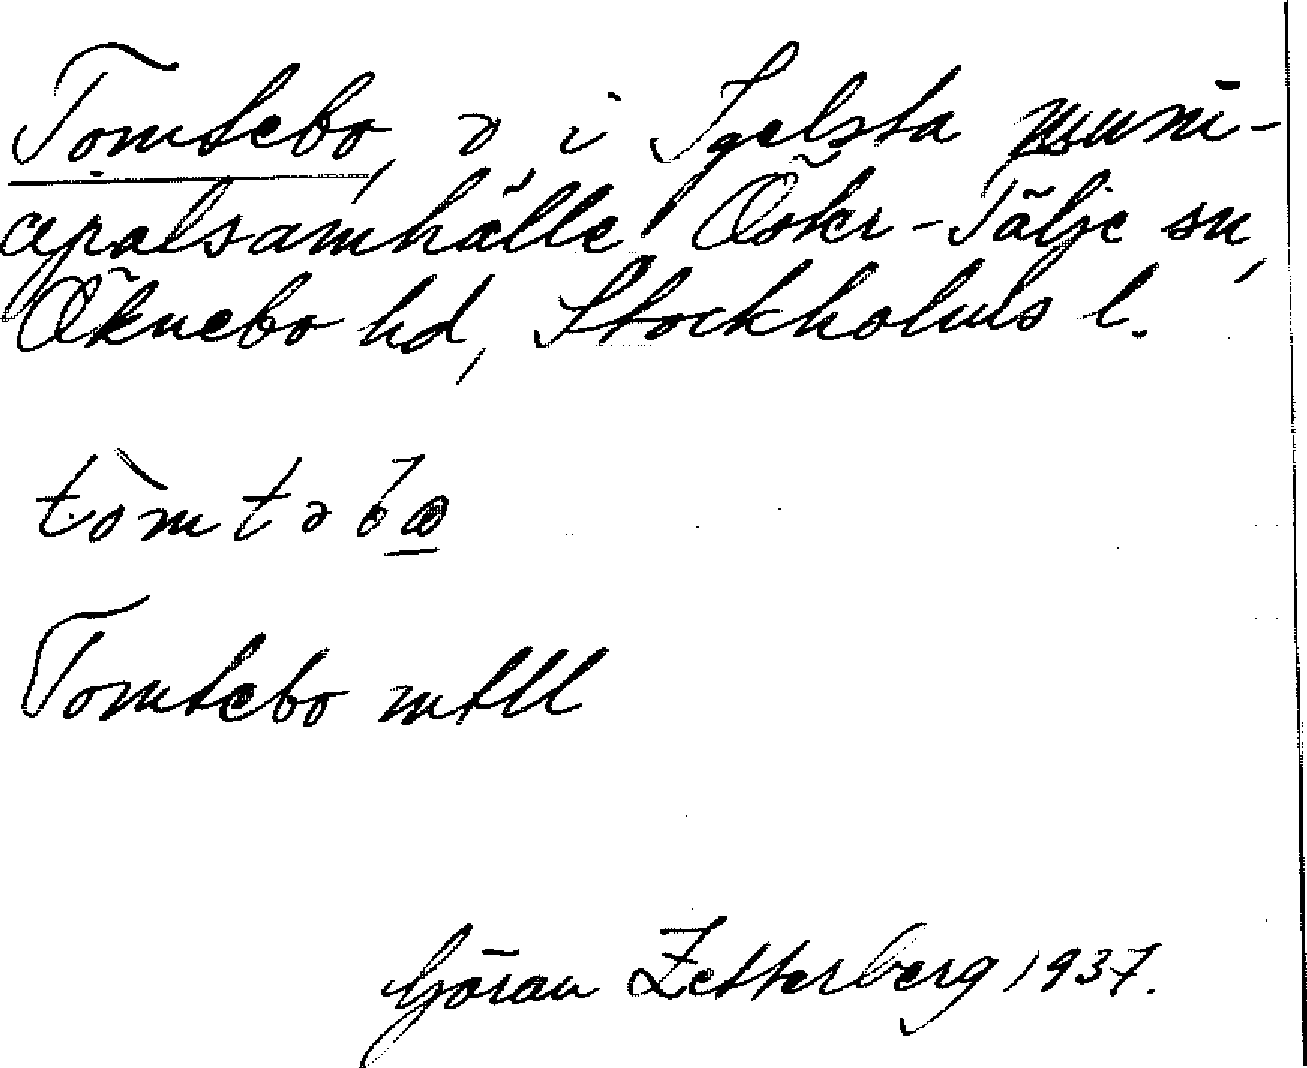 Tomtebo, v i Igelsta muni-
cipalsamhälle Öster-Tälje sn,
Öknebo hd, Stockholms l.
Tomtebo mtll
Göran Zetterberg 1937.